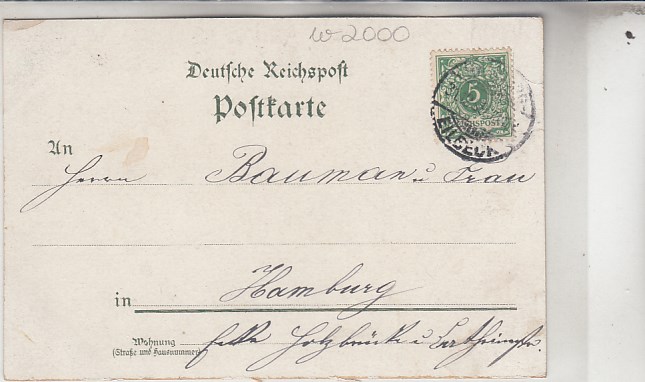 w 2000
Deutsche Reichspost
Postkarte
5
REICHSPOST
EILBECK
An
Herrn Bauman u Frau
in Hamburg
Wohnung
(Straße und Hausnummer)
Ecke Holzbrücke u